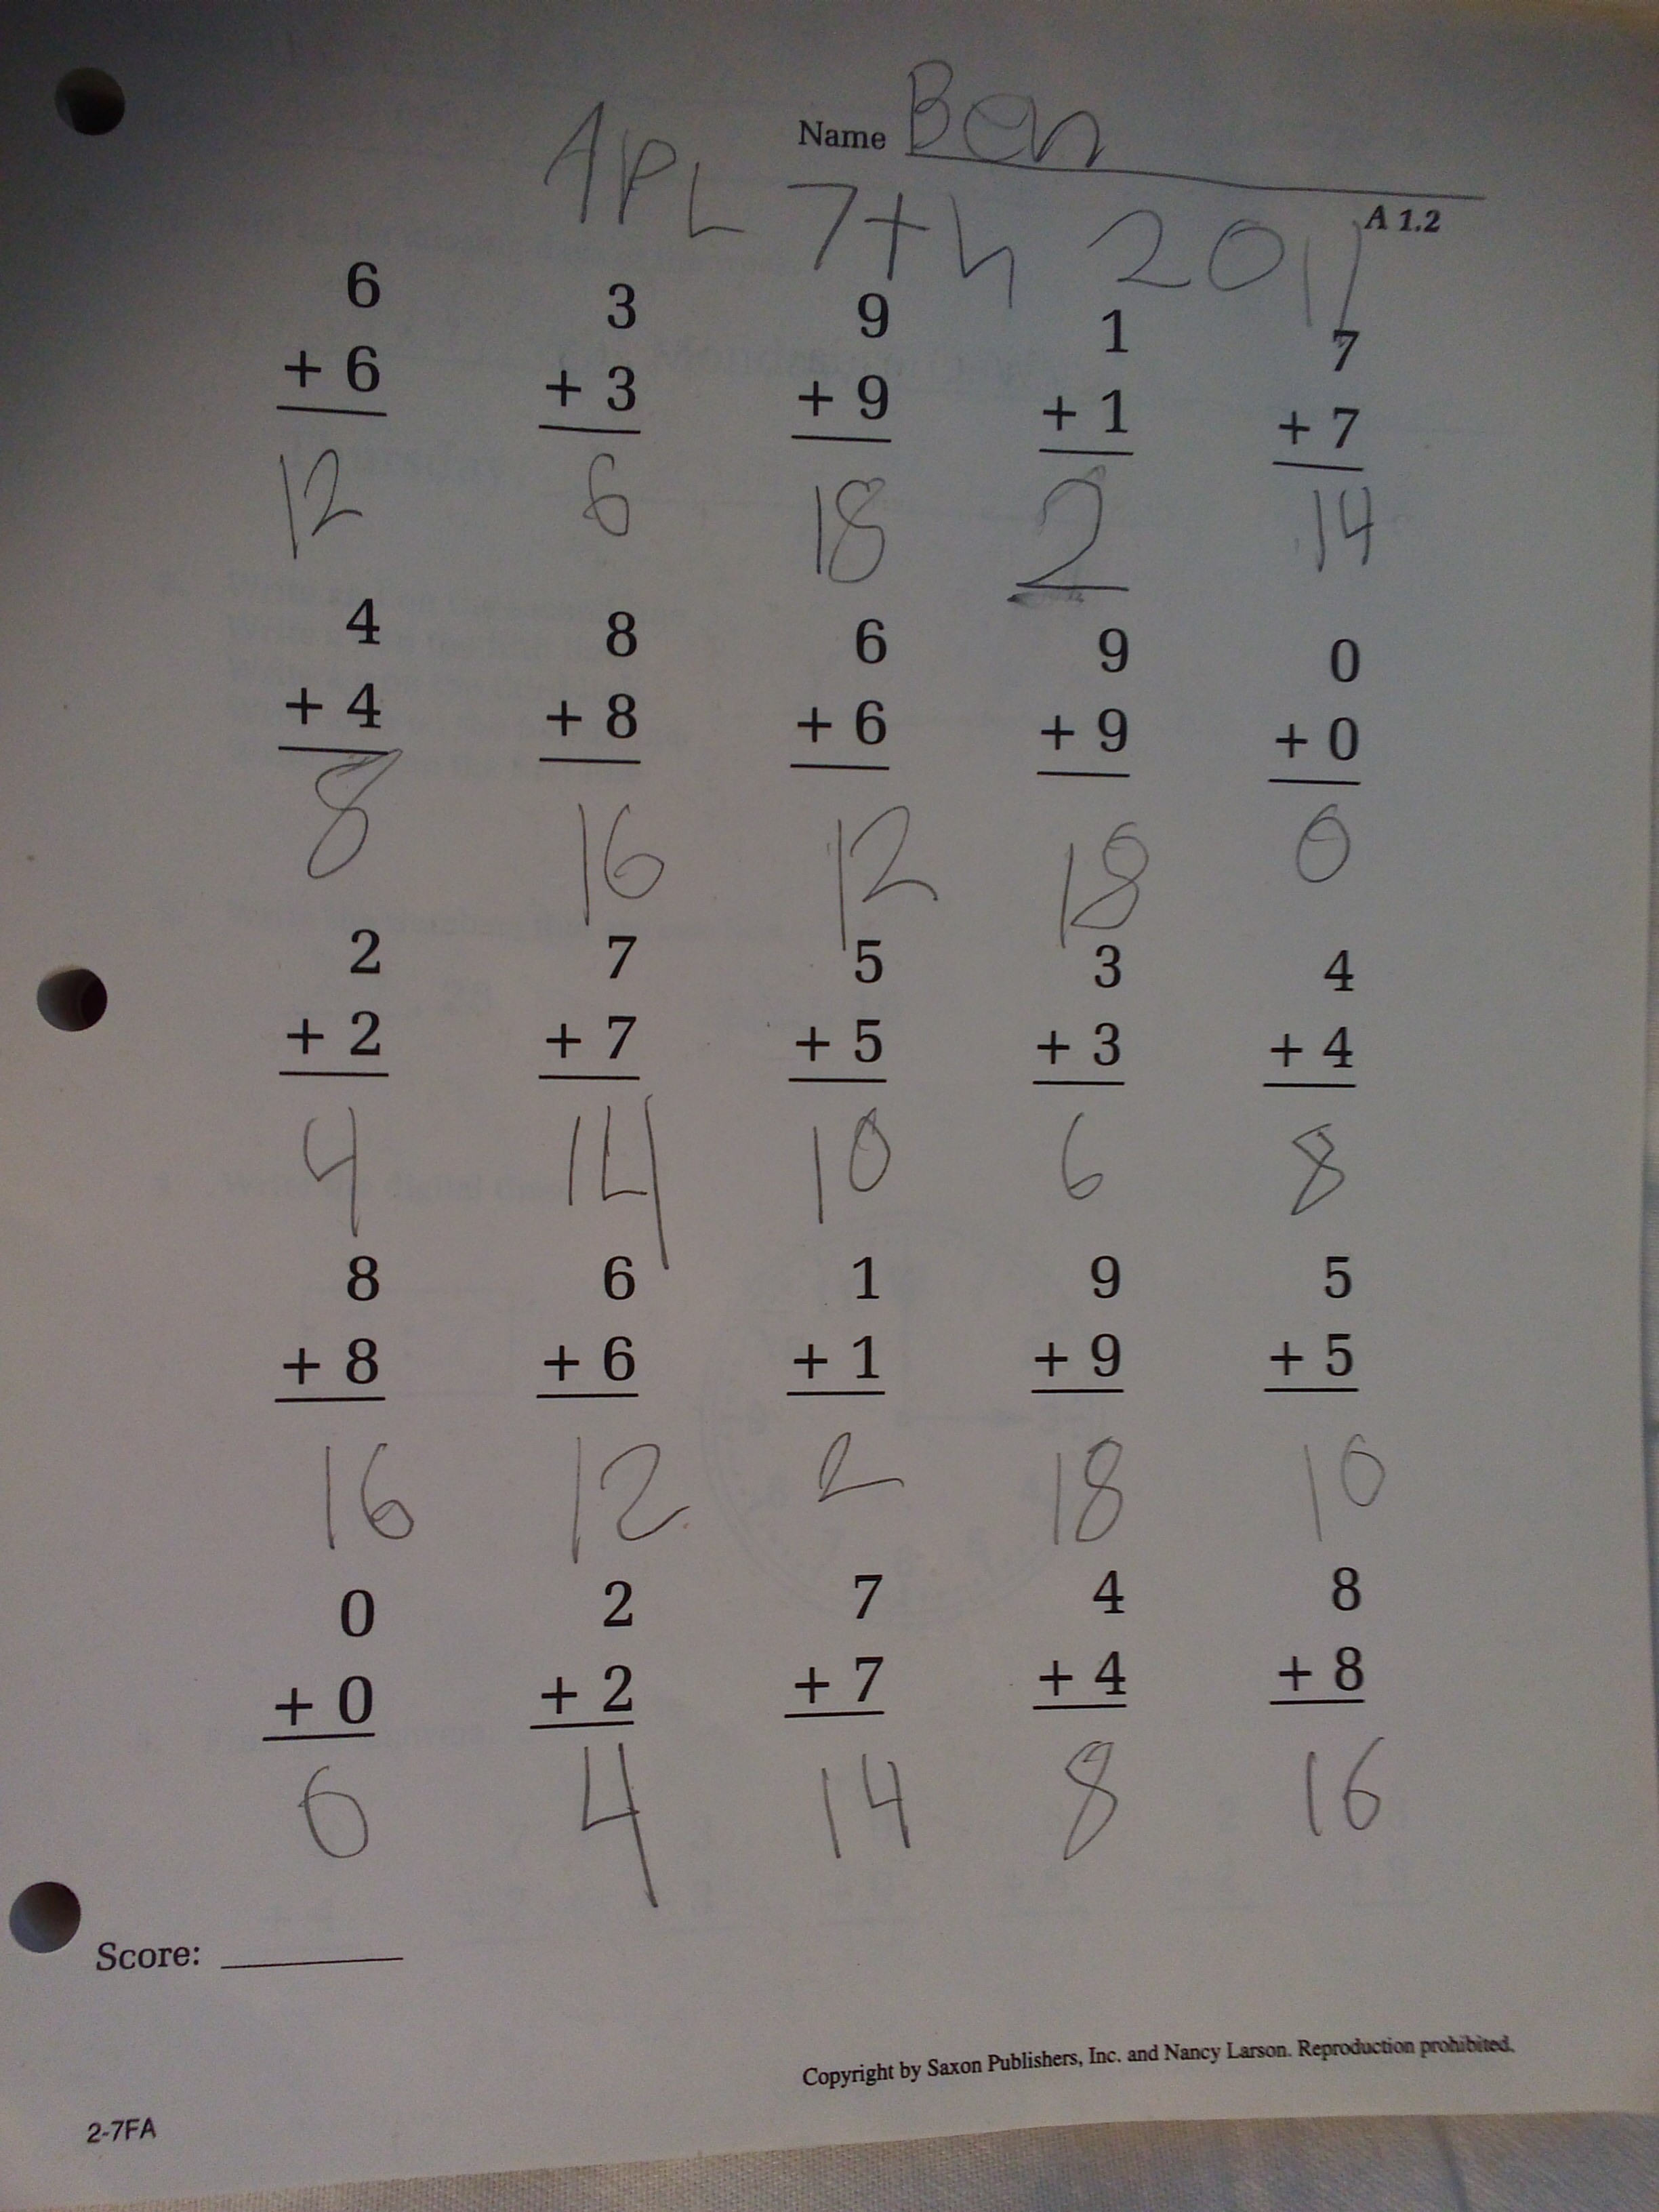 Name Ben
APL 7th 2011
A 1.2
6 3 9 1 7
+ 6 + 3 + 9 + 1 + 7
12 6 18 2 14
4 8 6 9 0
+ 4 + 8 + 6 + 9 + 0
8 16 12 18 0
2 7 5 3 4
+ 2 + 7 + 5 + 3 + 4
4 14 10 6 8
8 6 1 9 5
+ 8 + 6 + 1 + 9 + 5
16 12 2 18 10
0 2 7 4 8
+ 0 + 2 + 7 + 4 + 8
0 4 14 8 16
Score:
Copyright by Saxon Publishers, Inc. and Nancy Larson. Reproduction prohibited.
2-7FA